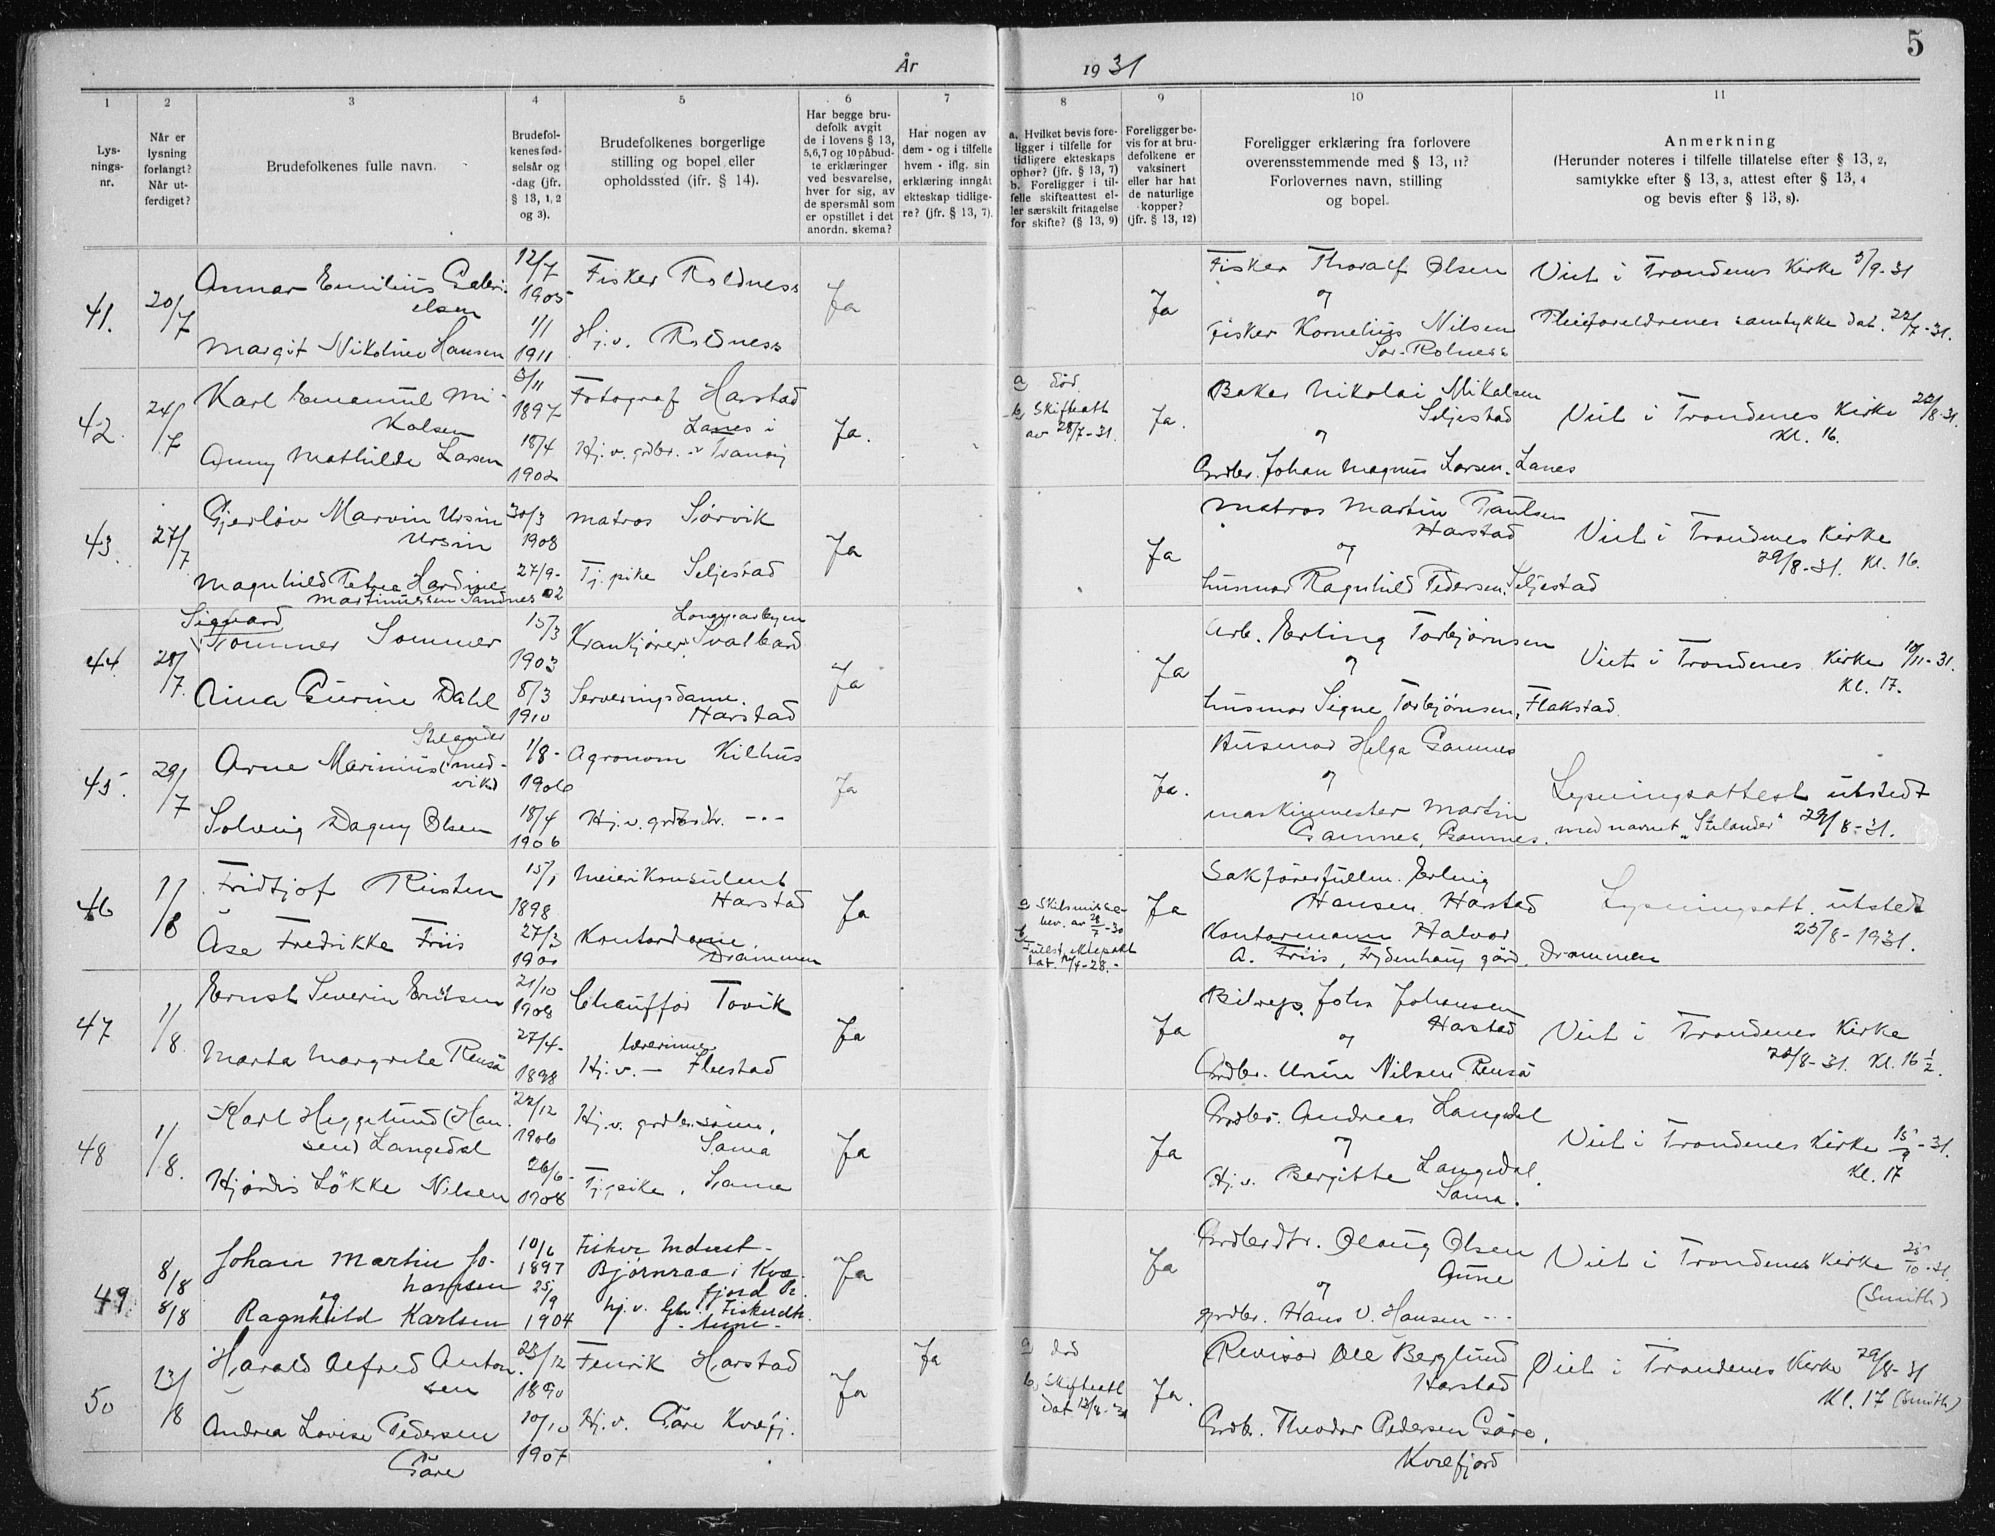 5
År 1931
1
2
3
4
5
6
7
8
9
10
11
Lys-
nings-
nr.
Når er
lysning
forlangt?
Når ut-
ferdiget?
Brudefolkenes fulle navn.
Brudefol-
kenes fød-
selsår og
-dag (jfr.
§ 13, 1, 2
og 3).
Brudefolkenes borgerlige
stilling og bopel eller
opholdssted (jfr. § 14).
Har begge bru-
defolk avgit
de i lovens § 13,
5,6,7 og 10 påbud-
te erklæringer
ved besvarelse,
hver for sig, av
de spørsmål som
er opstillet i det
anordn. skema?
Har nogen av
dem - og i tilfelle
hvem - iflg. sin
erklæring inngåt
ekteskap tidlige-
re? (jfr. § 13, 7).
a. Hvilket bevis fore-
ligger i tilfelle for
tidligere ekteskaps
ophør? (jfr. § 13, 7)
b. Foreligger i til-
felle skifteattest el-
ler særskilt fritagelse
for skifte? (§ 13, 9)
Foreligger be-
vis for at bru-
defolkene er
vaksinert
eller har hat
de naturlige
kopper?
(jfr. § 13, 12)
Foreligger erklæring fra forlovere
overensstemmende med § 13, 11?
Forlovernes navn, stilling
og bopel.
Anmerkning
(Herunder noteres i tilfelle tillatelse efter § 13, 2,
samtykke efter § 13, 3, attest efter § 13, 4
og bevis efter § 13, 8).
41.
20/7
Annar Emilius Gabri-
elsen
12/7
1905
Fisker Roldness
Ja
Ja
Fisker Thoralf Olsen
og
Viet i Trondenes Kirke 5/9-31
Margit Nikoline Hansen
1/1
1911
Hj.v. Roldness
Fisker Kornelius Nilsen
Sør-Rolness
Pleieforeldrenes samtykke dat. 22/7-31.
42.
24/7
Karl Emanuel Mi-
kalsen
3/11
1897
Fotograf Harstad
Ja.
a død
b, Skifteatt
av 28/7-31.
Ja.
Baker Nikolai Mikalsen
Seljestad
og
Viet i Trondenes Kirke 22/8-31.
Kl. 16.
Anny Mathilde Larsen
18/4
1902
Lanes i
Hj.v. grdbr. - Tranøy
Grdbr. Johan Magnus Larsen. Lanes
43.
27/7
Gjerløv Marvin Ursin
Ursin
30/3
1908
Matros Sørvik
Ja
Ja
Matros Martin Paulsen
Harstad
og
Viet i Trondenes Kirke
29/8-31. Kl. 16.
Magnhild Petrea Hardine
Martinussen Sandnes
27/9-
02
Tj.pike Seljestad
Husmor Ragnhild Pedersen. Seljestad
44.
28/7.
Sigvard
Tommer Sommer
15/3
1903
Longyearbyen
Krankjører. Svalbard
Ja
Ja
Arb. Erling Torbjørnsen
og
Viet i Trondenes Kirke 10/11-31.
Kl. 17.
Aina Gurine Dahl
8/3
1910
Serveringsdame.
Harstad
Husmor Signe Torbjørnsen, Flakstad.
45.
29/7
Stelander
Arne Marinius (Smed-
vik)
1/8-
1906
Agronom Kilhus
Ja
Ja.
Husmor Helga Gamnes
og
Lysningsattest utstedt
med navnet „Stelander" 29/8-31.
Solveig Dagny Olsen
18/4
1906
Hj.v. grdbrdtr. -"-
Maskinmester Martin
Gamnes, Gamnes.
46
1/8
Fridtjof Risten
15/1
1898.
Meierikonsulent
Harstad
Ja
a Skilsmisse-
bev. av 28/7-30
b
Tinglest. ektepakt
dat. 12/4-28.-
Ja
Sakførerfullm. Erling
Hansen. Harstad
Lysningsatt. utstedt
25/8-1931.
Åse Fredrikke Friis
27/3
1900
Kontordame.
Drammen
Kontormann Halvor
A. Friis, Frydenhaug gård. Drammen
47
1/8.
Ernst Severin Eriksen
21/10
1908
Chauffør Tovik
Ja
Ja
Bilreps. John Johansen
Harstad
og
Viet i Trondenes Kirke
22/8-31. Kl. 16 1/2.
Marta Margrete Renså
27/4-
1898
lærerinne
Hj.v. - Flæstad
Grdbr. Ursin Nilsen Renså
48
1/8.
Karl Heggelund (Han-
sen) Langedal
22/12
1906
Hj.v. grdbr.sønn.
Sama
Ja
Ja
Grdbr. Andreas Langedal
og
Viet i Trondenes Kirke 15/9-31.
Kl. 17
Hjørdis Løkke Nilsen
26/6-
1908
Tj.pike. Sama
Hj.v. Bergitte Langedal.
Sama.
49
8/8
8/8
Johan Martin Jo-
hansen
og
Ragnhild Karlsen
10/6
1897
25/9
1904
Fisker Indrest-
Bjørnraa i Kvæ-
fjord Pr.
hj.v. Gbr. Fiskerdtr.
- Aune -
Ja
Ja
Grdbrdtr. Olaug Olsen
Aune
og
grdbr. Hans V. Hansen -"-
Viet i Trondenes Kirke 25/10-31.
(Smith)
50
13/8
Harald Alfred Anton-
sen
23/12
1890
Fenrik Harstad
Ja
Ja
a død
b, Skifteatt
dat. 12/8-31
Ja.
Revisor Ole Berglund
Harstad
Viet i Trondenes Kirke 29/8-31
Kl. 17 (Smith)
Andrea Lovise Pedersen
Gåre
10/10
1907
Hj.v. Gåre Kvæfj.
Grdb. Theodor Pedersen Gåre.
Kvæfjord